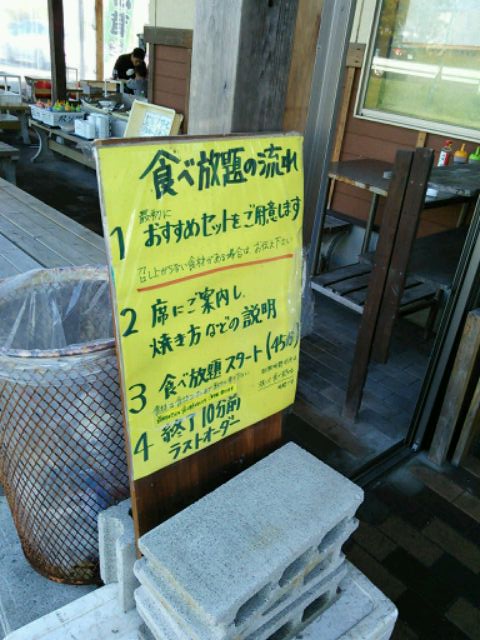 食べ放題の流れ
最初に
1 おすすめセットをご用意します
召し上がらない食材がある場合は お伝え下さい
2 席にご案内し、
焼き方などの説明
3 食べ放題スタート(45分)
4 終了10分前
ラストオーダー